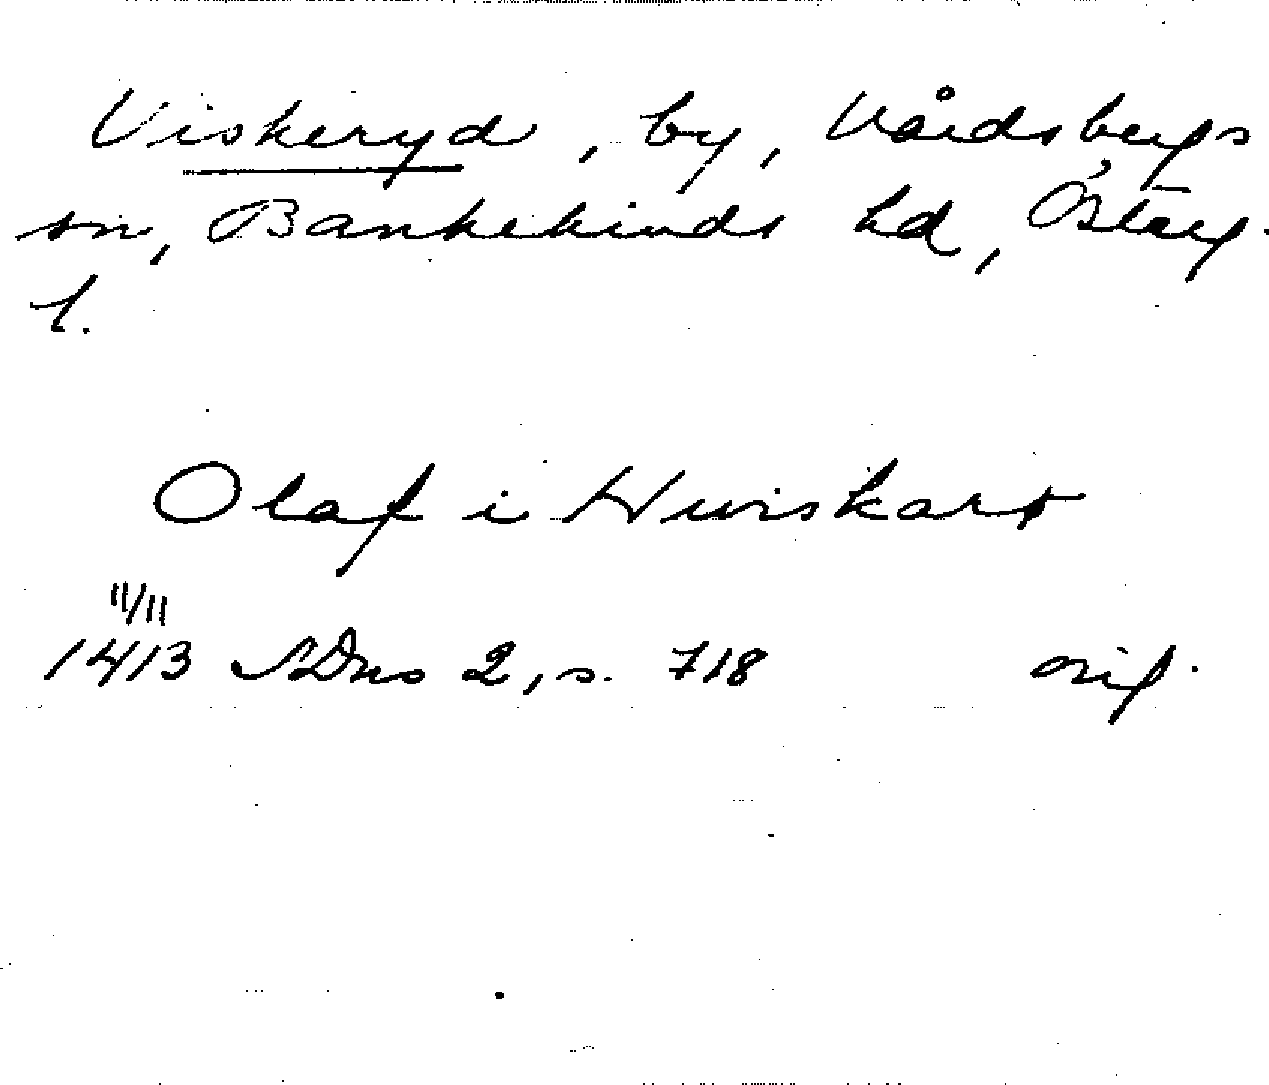 Viskeryd, by, Vårdsbergs
sn, Bankekinds hd, Österg.
l.
Olaf i Hwiskarø
11/11
1413 SDns 2, s. 718 orig.